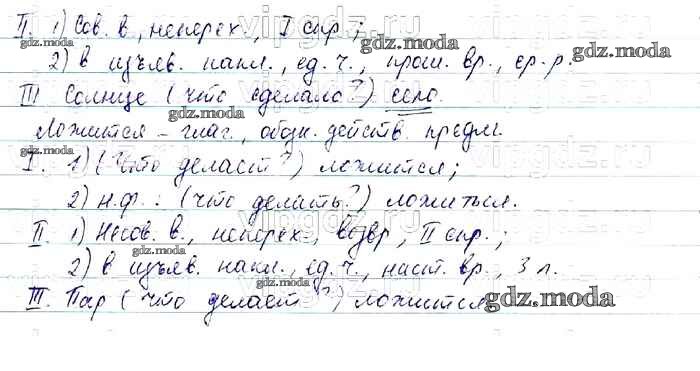 II. 1) Сов. в., неперех., I спр.;
2) в изъяв. накл., ед. ч., прош. вр., ср. р.
III Солнце (что сделало?) село.
Ложится – глаг., обозн. действ. предм.
I. 1) (Что делает?) ложится;
2) н.ф.: (что делать?) ложиться.
II. 1) Несов. в., неперех., возвр., II спр.;
2) в изъяв. накл., ед. ч., наст. вр., 3 л.
III. Пар (что делает?) ложится
gdz.moda
vipgdz.ru